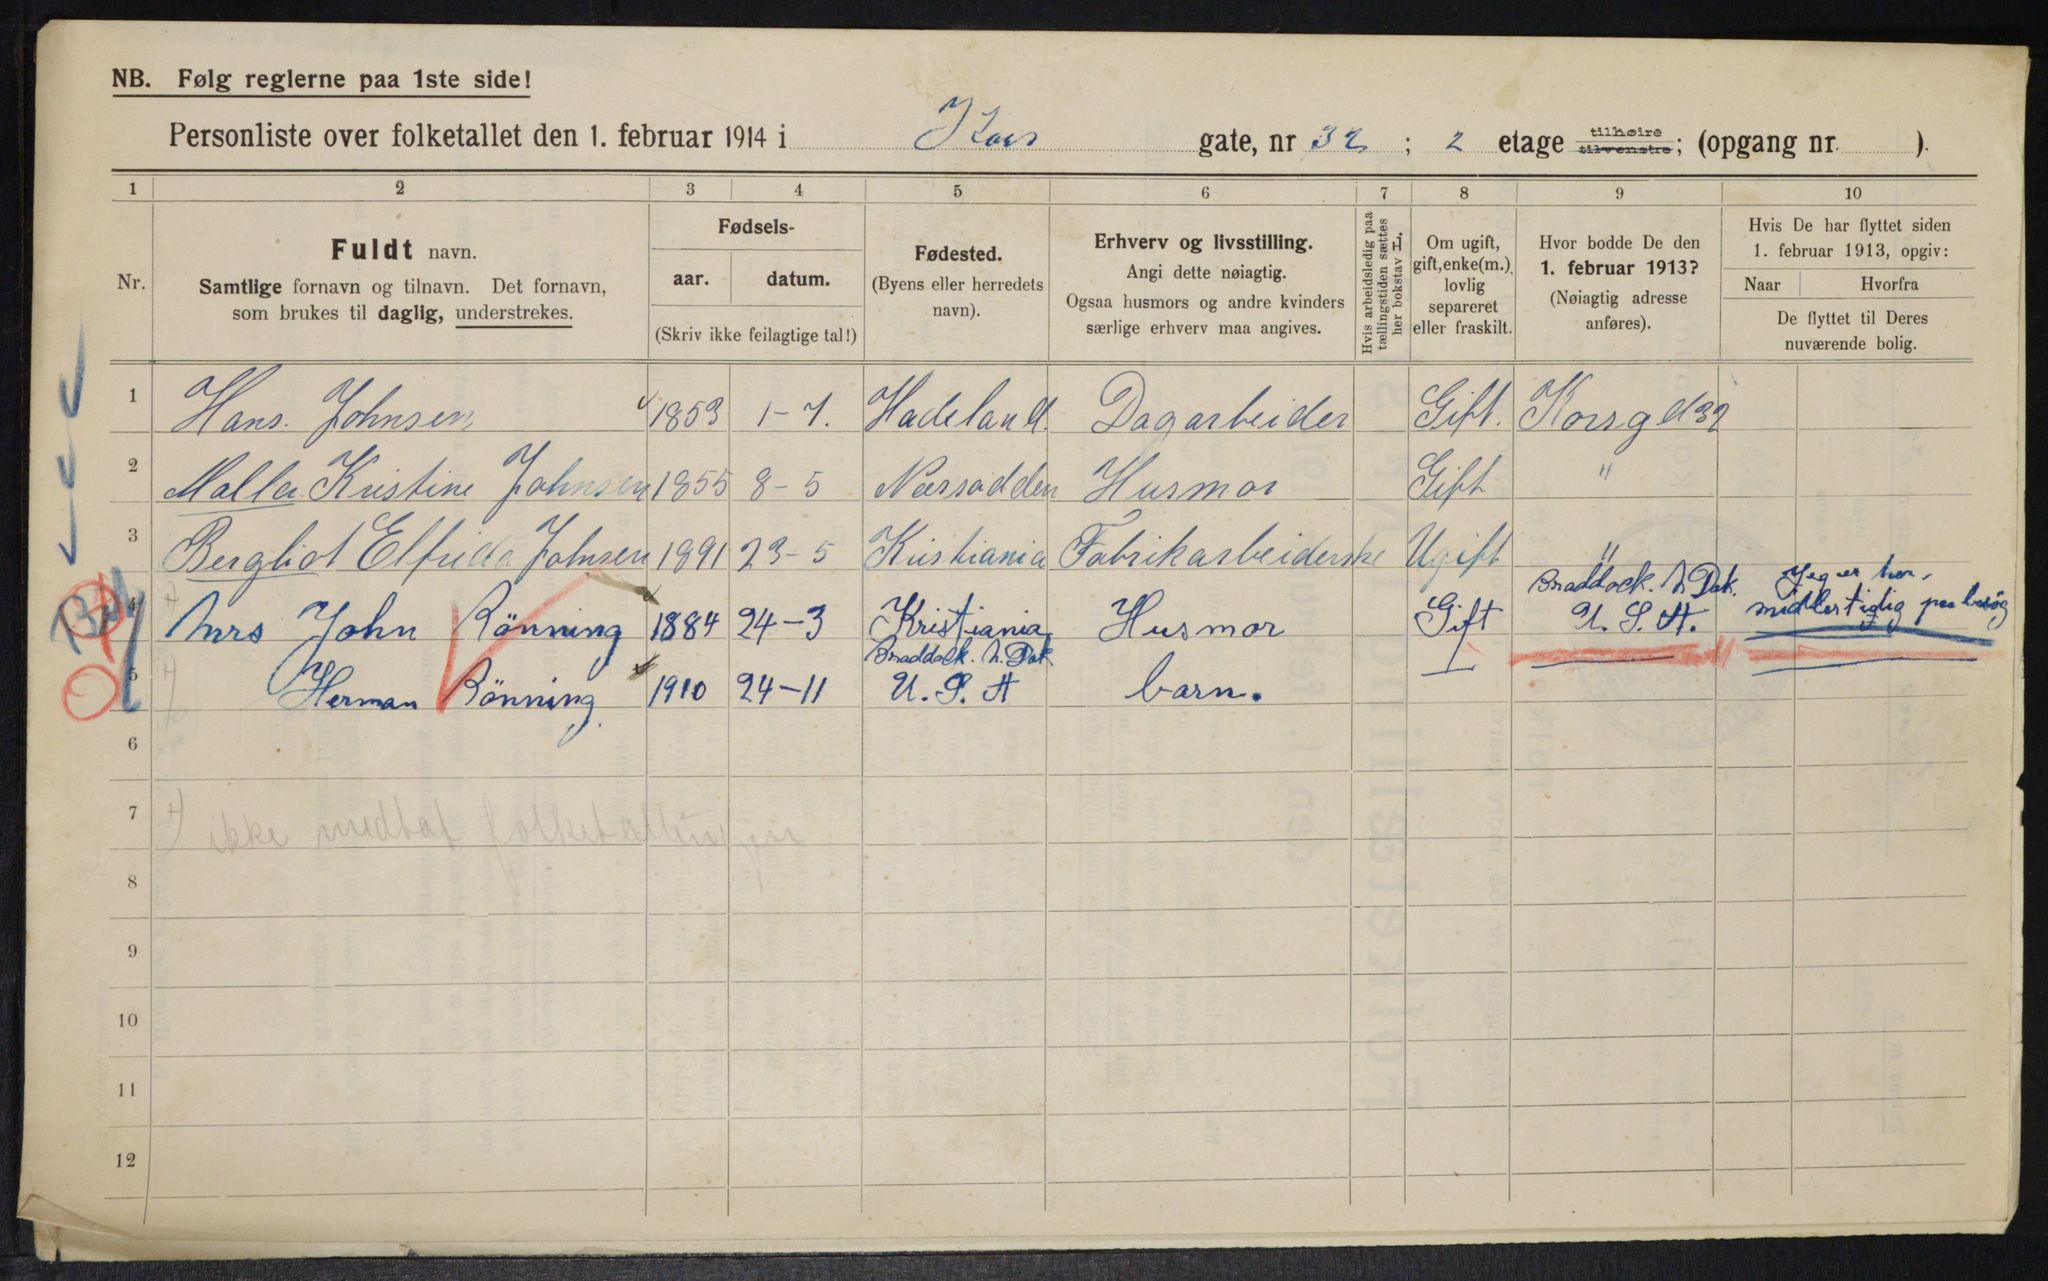 NB. Følg reglerne paa 1ste side!
Personliste over folketallet den 1. februar 1914 i Kors gate, nr 32 ; 2 etage tilhøire tilvenstre; (opgang nr. ).
1 2 3 4 5 6 7 8 9 10
Nr.
Fuldt navn.
Samtlige fornavn og tilnavn. Det fornavn,
som brukes til daglig, understrekes.
Fødsels-
aar. datum.
(Skriv ikke feilagtige tal!)
Fødested.
(Byens eller herredets
navn).
Erhverv og livsstilling.
Angi dette nøiagtig.
Ogsaa husmors og andre kvinders
særlige erhverv maa angives.
Hvis arbeidsledig paa
tællingstiden sættes
her bokstav L.
Om ugift,
gift, enke(m.),
lovlig
separeret
eller fraskilt.
Hvor bodde De den
1. februar 1913?
(Nøiagtig adresse
anføres).
Hvis De har flyttet siden
1. februar 1913, opgiv:
Naar Hvorfra
De flyttet til Deres
nuværende bolig.
1 Hans. Johnsen 1853 1-7. Hadeland. Dagarbeider Gift. Korsgd 32
2 Malla Kristine Johnsen 1855 8-5 Næssodden Husmor Gift "
3 Bergliot Elfrida Johnsen 1891 23-5 Kristiania Fabrikarbeiderske Ugift "
4 Mrs John Rönning 1884 24-3 Kristiania Husmor Gift Braddock. N. Dak. U. S. A. Jeg er her, midlertidig paa besøg
5 Herman Rönning 1910 24-11 Braddock. N. Dak U. S. A barn.
6
7
+) ikke medtat folketællingen
8
9
10
11
12